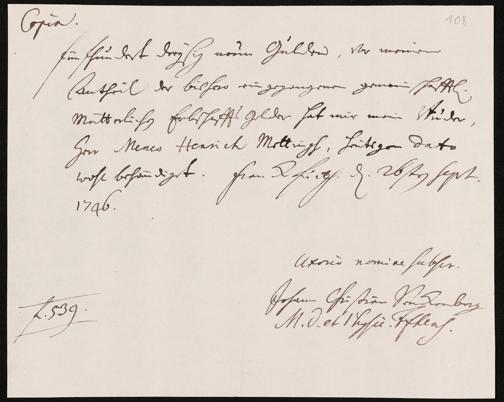 Copia.
108
fünfhundert dreysig neün Gülden, vor meinen
Antheil der bishero eingegangenen gemeinschafftl.
Mütterlichen Erbschaffts Gelder hat mir mein Bruder,
Herr Meneo Henrich Mettingh, heutigen dato
wohl behändiget. Franckfurth. d. 26ten Sept.
1746.
Uxorio nomine subscr.
Johann Christian Senckenberg
M. D. et Physic.
f. 539.